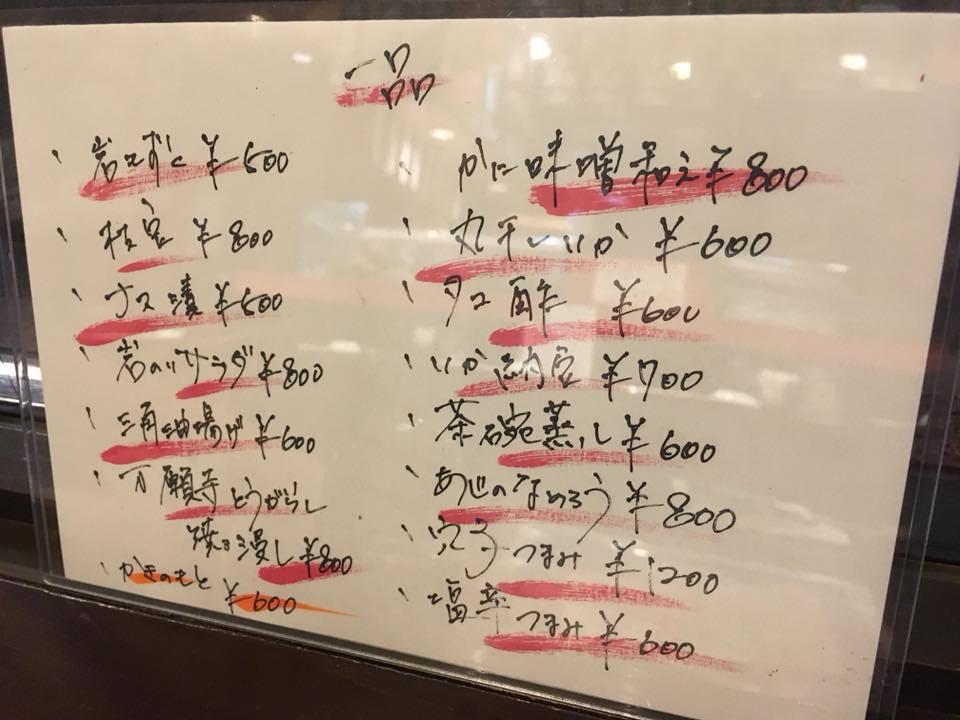 一品
、岩もずく ¥500
、枝豆 ¥800
、ナス漬 ¥500
、岩のりサラダ ¥800
、三角油揚げ ¥600
、万願寺とうがらし
焼き浸し ¥800
、かきのもと
¥600
、かに味噌和え ¥800
、丸干しいか ¥600
、タコ酢 ¥600
、いか納豆 ¥700
、茶碗蒸し ¥600
、あじのなめろう ¥800
、穴子つまみ ¥1200
、塩辛つまみ ¥600